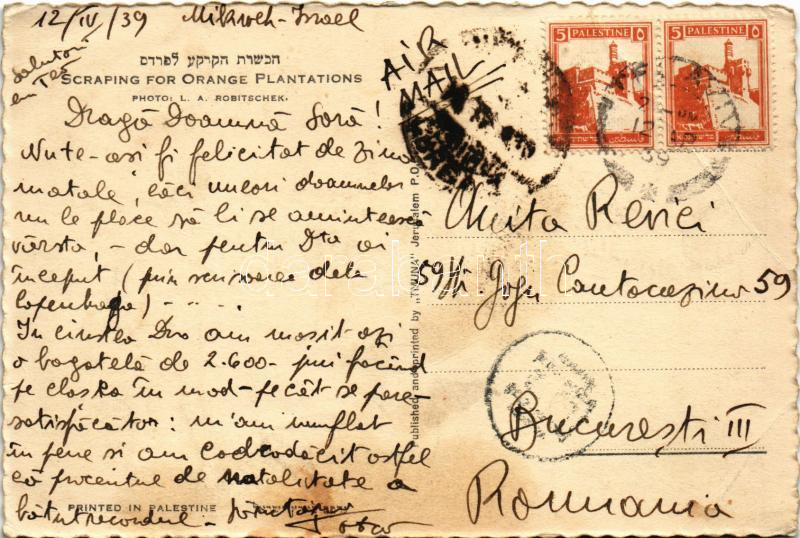 12/IV/39 Mikweh-Israel
הכשרת הקרקע לפרדס
SCRAPING FOR ORANGE PLANTATIONS
PHOTO: L. A. ROBITSCHEK.
AIR
MAIL
5 PALESTINE ١٥
5 PALESTINE ١٥
Dragă Doamnă Soră!
Nu te-asi fi felicitat de ziua
matale, căci uneori doamnelor
nu le place să li se amintească
vârsta, - dar pentru Dta ai
început (prin scrisoarea dela
Copenhaga) -
In cinstea Dvo am mosit azi
o bogatelă de 2.600.- pui făcând
pe closka în mod - pecât se pare -
satisfăcător: m'am umflat
în pene si am codcodăcit astfel
că procentul de natalitate a
bătut recordul.-
Anita Revici
59 Str. Gogu Cantacuzino 59
Bucuresti III
Romania
Published and printed by "TMUNA" Jerusalem P.O.
PRINTED IN PALESTINE
darabanth